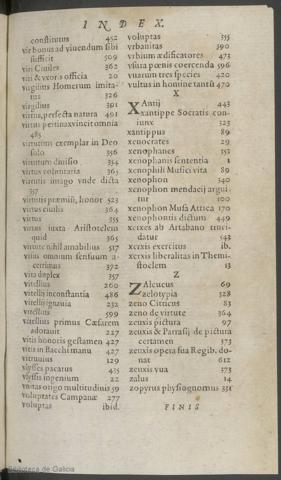 INDEX.
constitutus 452
vir bonus ad viuendum sibi
sufficit 509
viri Ciuiles 362
viti & vxoris officia 20
virgilius Homerum imita-
tus 326
virgilius 391
virtus, perfecta natura 491
virtus pertinax vincit omnia
485
virtutum exemplar in Deo
solo 356
virtutum diuisio 354
virtus volentaria 365
virtutis imago vnde dicta
357
virtutis præmiũ, honor 523
virtus ciuilis 364
virtus 355
virtus iuxta Aristotelem
quid 365
virtute nihil amabilius 517
visus omnium sensuum a-
cerrimus 372
vita duplex 357
vitellius 260
vitellij inconstantia 486
vitellij ignauia 232
vitellius 599
vitellius primus Cæsarem
adorauit 227
vitis honoris gestamen 427
vitis in Bacchi manu 427
vitruuius 129
vlysses pacatus 435
vlyssis ingenium 22
vnitas origo multitudinis 59
voluptates Campanæ 277
voluptas ibid.
voluptas 355
vrbanitas 390
vrbium ædificatores 473
vsura pœnis coercenda 596
vuarum tres species 420
vultus in homine tantũ 470
X
XAntij 443
xantippe Socratis con-
iunx 323
xantippus 89
xenocrates 29
xenophanes 152
xenophanis sententia 1
xenophili Musici vita 89
xenophon 340
xenophon mendacij argui-
tur 100
xenophon Musa Attica 170
xenophontis dictum 449
xerxes ab Artabano truci-
datur 543
xerxis exercitus ib.
xerxis liberalitas in Themi-
stoclem 13
Z
ZAleucus 69
zelotypia 328
zeno Citticus 83
zeno de virtute 364
zeuxis pictura 97
zeuxis & Parrasij de pictura
certamen 373
zeuxis opera sua Regib. do-
nat 612
zeuxis vua 373
zalus 14
zopyrus physiognomus 331
FINIS
Biblioteca de Galicia